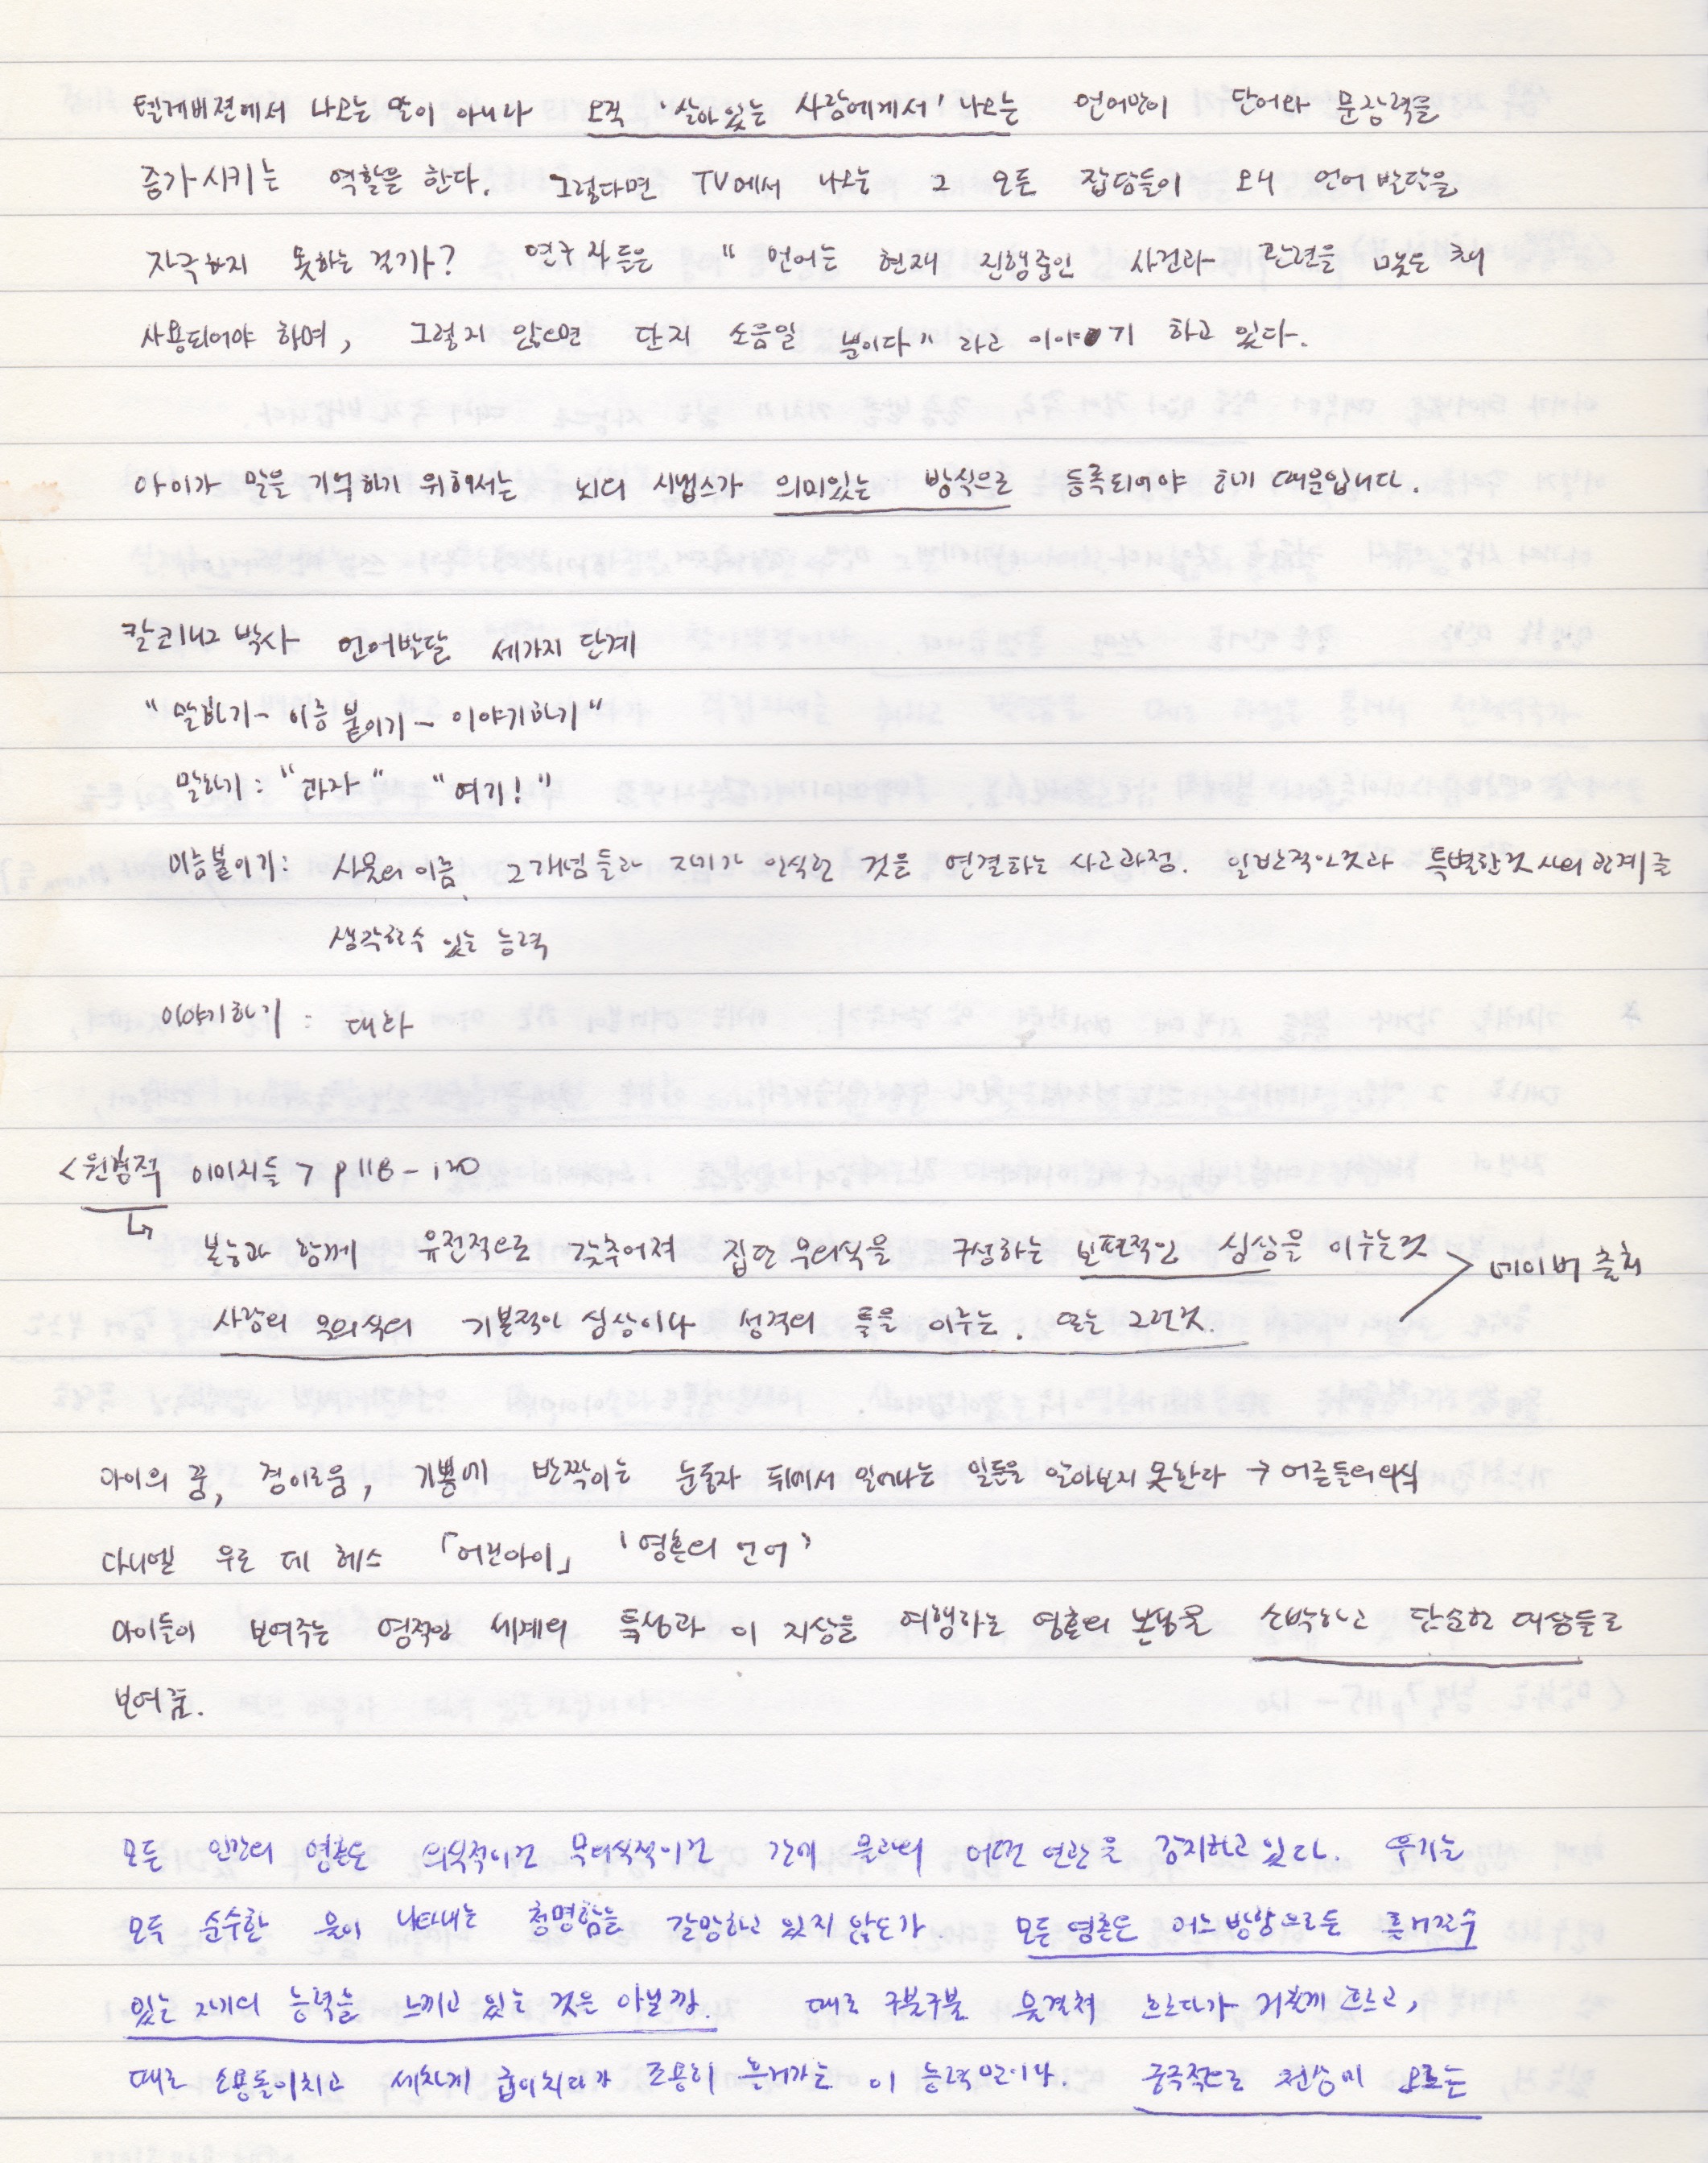 텔레비젼에서 나오는 말이 아니라 오직 '살아있는 사람에게서' 나오는 언어만이 단어와 문장력을
증가시키는 역할을 한다. 그렇다면 TV에서 나오는 그 모든 잡담들이 왜 언어발달을
자극하지 못하는 것인가? 연구자들은 "언어는 현재 진행중인 사건과 관련을 맺은 채
사용되어야 하며, 그렇지 않으면 단지 소음일 뿐이다" 라고 이야기 하고 있다.
아이가 말을 기억하기 위해서는 뇌의 시냅스가 의미있는 방식으로 등록되어야 하기 때문입니다.
칼 쾨니그 박사 언어발달 세가지 단계
"말하기 - 이름 붙이기 - 이야기하기"
말하기 : "과자" "여기!"
이름붙이기 : 사물의 이름, 그 개념들과 자기가 인식한 것을 연결하는 사고과정. 일반적인것과 특별한것 사이 관계를
생각할수 있는 능력
이야기하기 : 대화
<원형적 이미지들> p118 - 120
↳ 본능과 함께 유전적으로 갖추어져 집단 무의식을 구성하는 보편적인 심상을 이루는것 > 네이버 출처
사람의 무의식의 기본적인 심상이나 성격의 틀을 이루는. 또는 그런것.
아이의 꿈, 경이로움, 기쁨에 반짝이는 눈동자 뒤에서 일어나는 일들을 알아보지 못한다 → 어른들의 의식
다니엘 우로 데 헤스 「어린아이」 '영혼의 언어'
아이들이 보여주는 영적인 세계의 특성과 이 지상을 여행하는 영혼의 본능을 소박하고 단순한 대상들로
보여줌.
모든 인간의 영혼은 의식적이건 무의식적이건 간에 물과의 어떤 연관을 감지하고 있다. 우리는
모두 순수한 물이 나타내는 청명함을 갈망하고 있지 않은가. 모든 영혼은 어느 방향으로든 흘러갈 수
있는 자기의 능력을 느끼고 있는 것은 아닐까. 때로 구불구불 물결쳐 흐르다가 거칠게 흐르고,
때로 소용돌이치고 세차게 굽이치다가 조용히 흘러가는 이 능력으로나. 궁극적으로 천상의 오르는